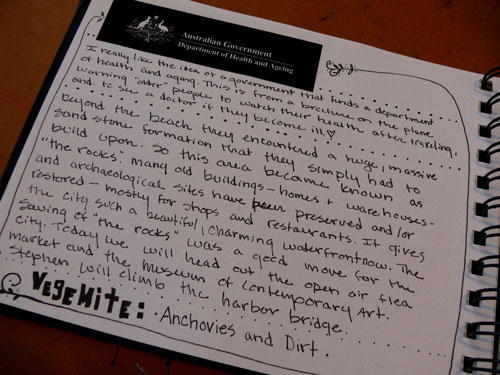 Australian Government
Department of Health and Ageing
I really like the idea of a government that funds a department
of health and aging. This is from a brochure on the plane
warning "older" people to watch their health after traveling,
and to see a doctor if they become ill.
beyond the beach they encountered a huge, massive
sand stone formation that they simply had to
build upon. So this area became known as
"the rocks". Many old buildings - homes + warehouses -
and archaeological sites have been preserved and/or
restored - mostly for shops and restaurants. It gives
the city such a beautiful, charming waterfront now. The
saving of "the rocks" was a good move for the
city. Today we will head out the open air flea
market and the museum of contemporary Art.
Stephen will climb the harbor bridge.
VEGEMITE: Anchovies and Dirt.